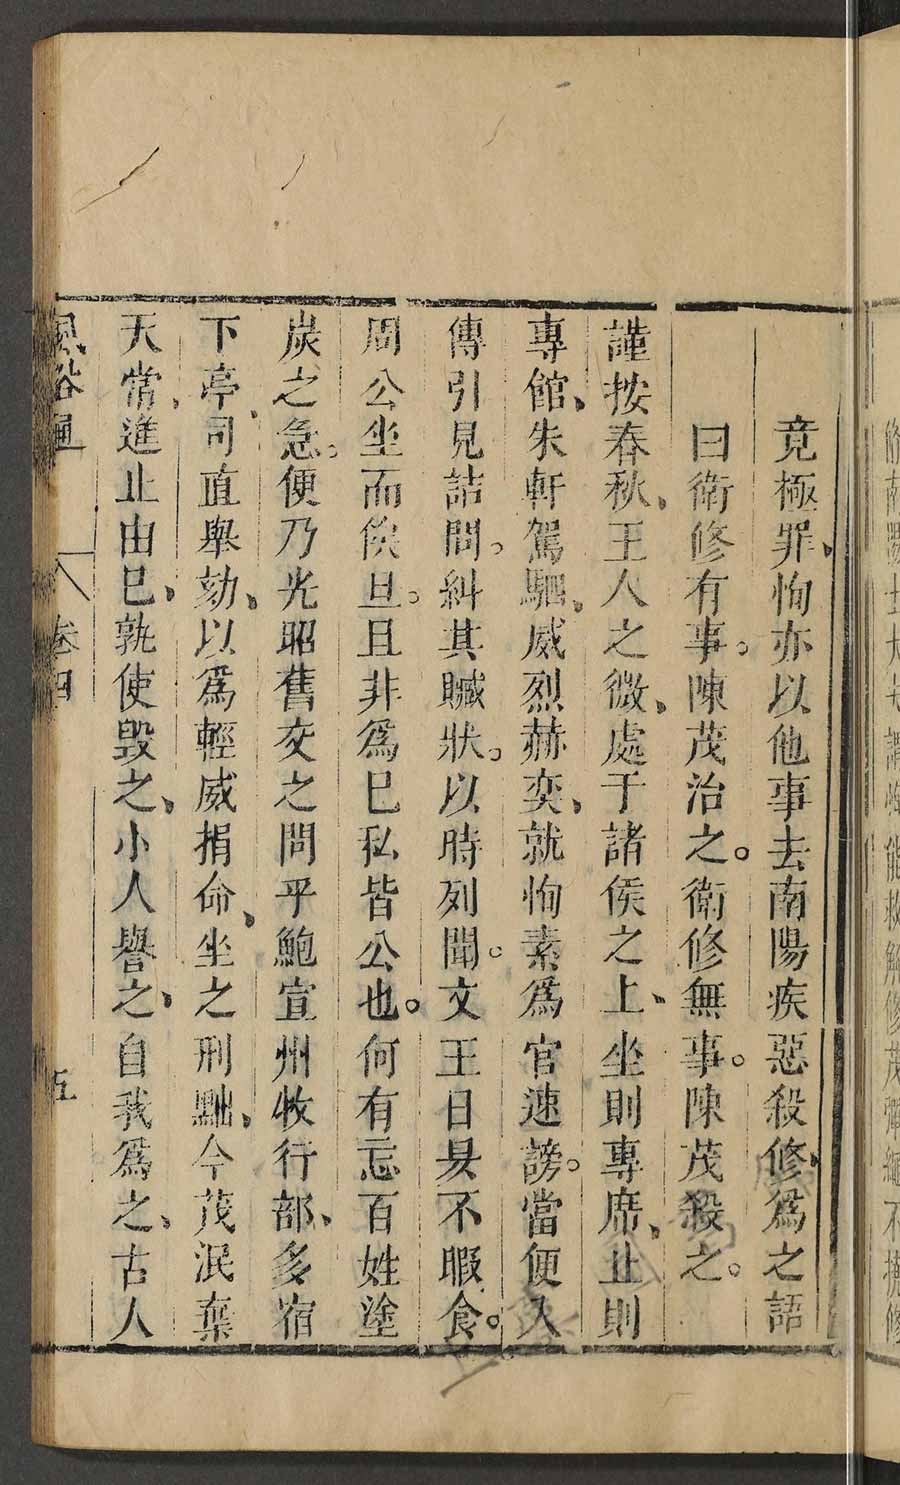 竟極罪恂亦以他事去南陽疾惡殺修爲之語
曰衛修有事。陳茂治之。衛修無事。陳茂殺之。
謹按春秋、王人之微、處于諸侯之上、坐則專席、止則
專館、朱軒駕駟、威烈赫奕、就恂素爲官速謗。當便入
傳引見詰問。糾其贓狀。以時列聞。文王日昃不暇食。
周公坐而俟旦。且非爲已私皆公也。何有忘百姓塗
炭之急。便乃光昭舊交之問乎鮑宣州牧行部、多宿
下亭、司直舉劾、以爲輕威捐命、坐之刑黜、今茂泯棄
天常、進止由已、孰使毀之、小人譽之、自我爲之、古人
風俗通 卷四 五